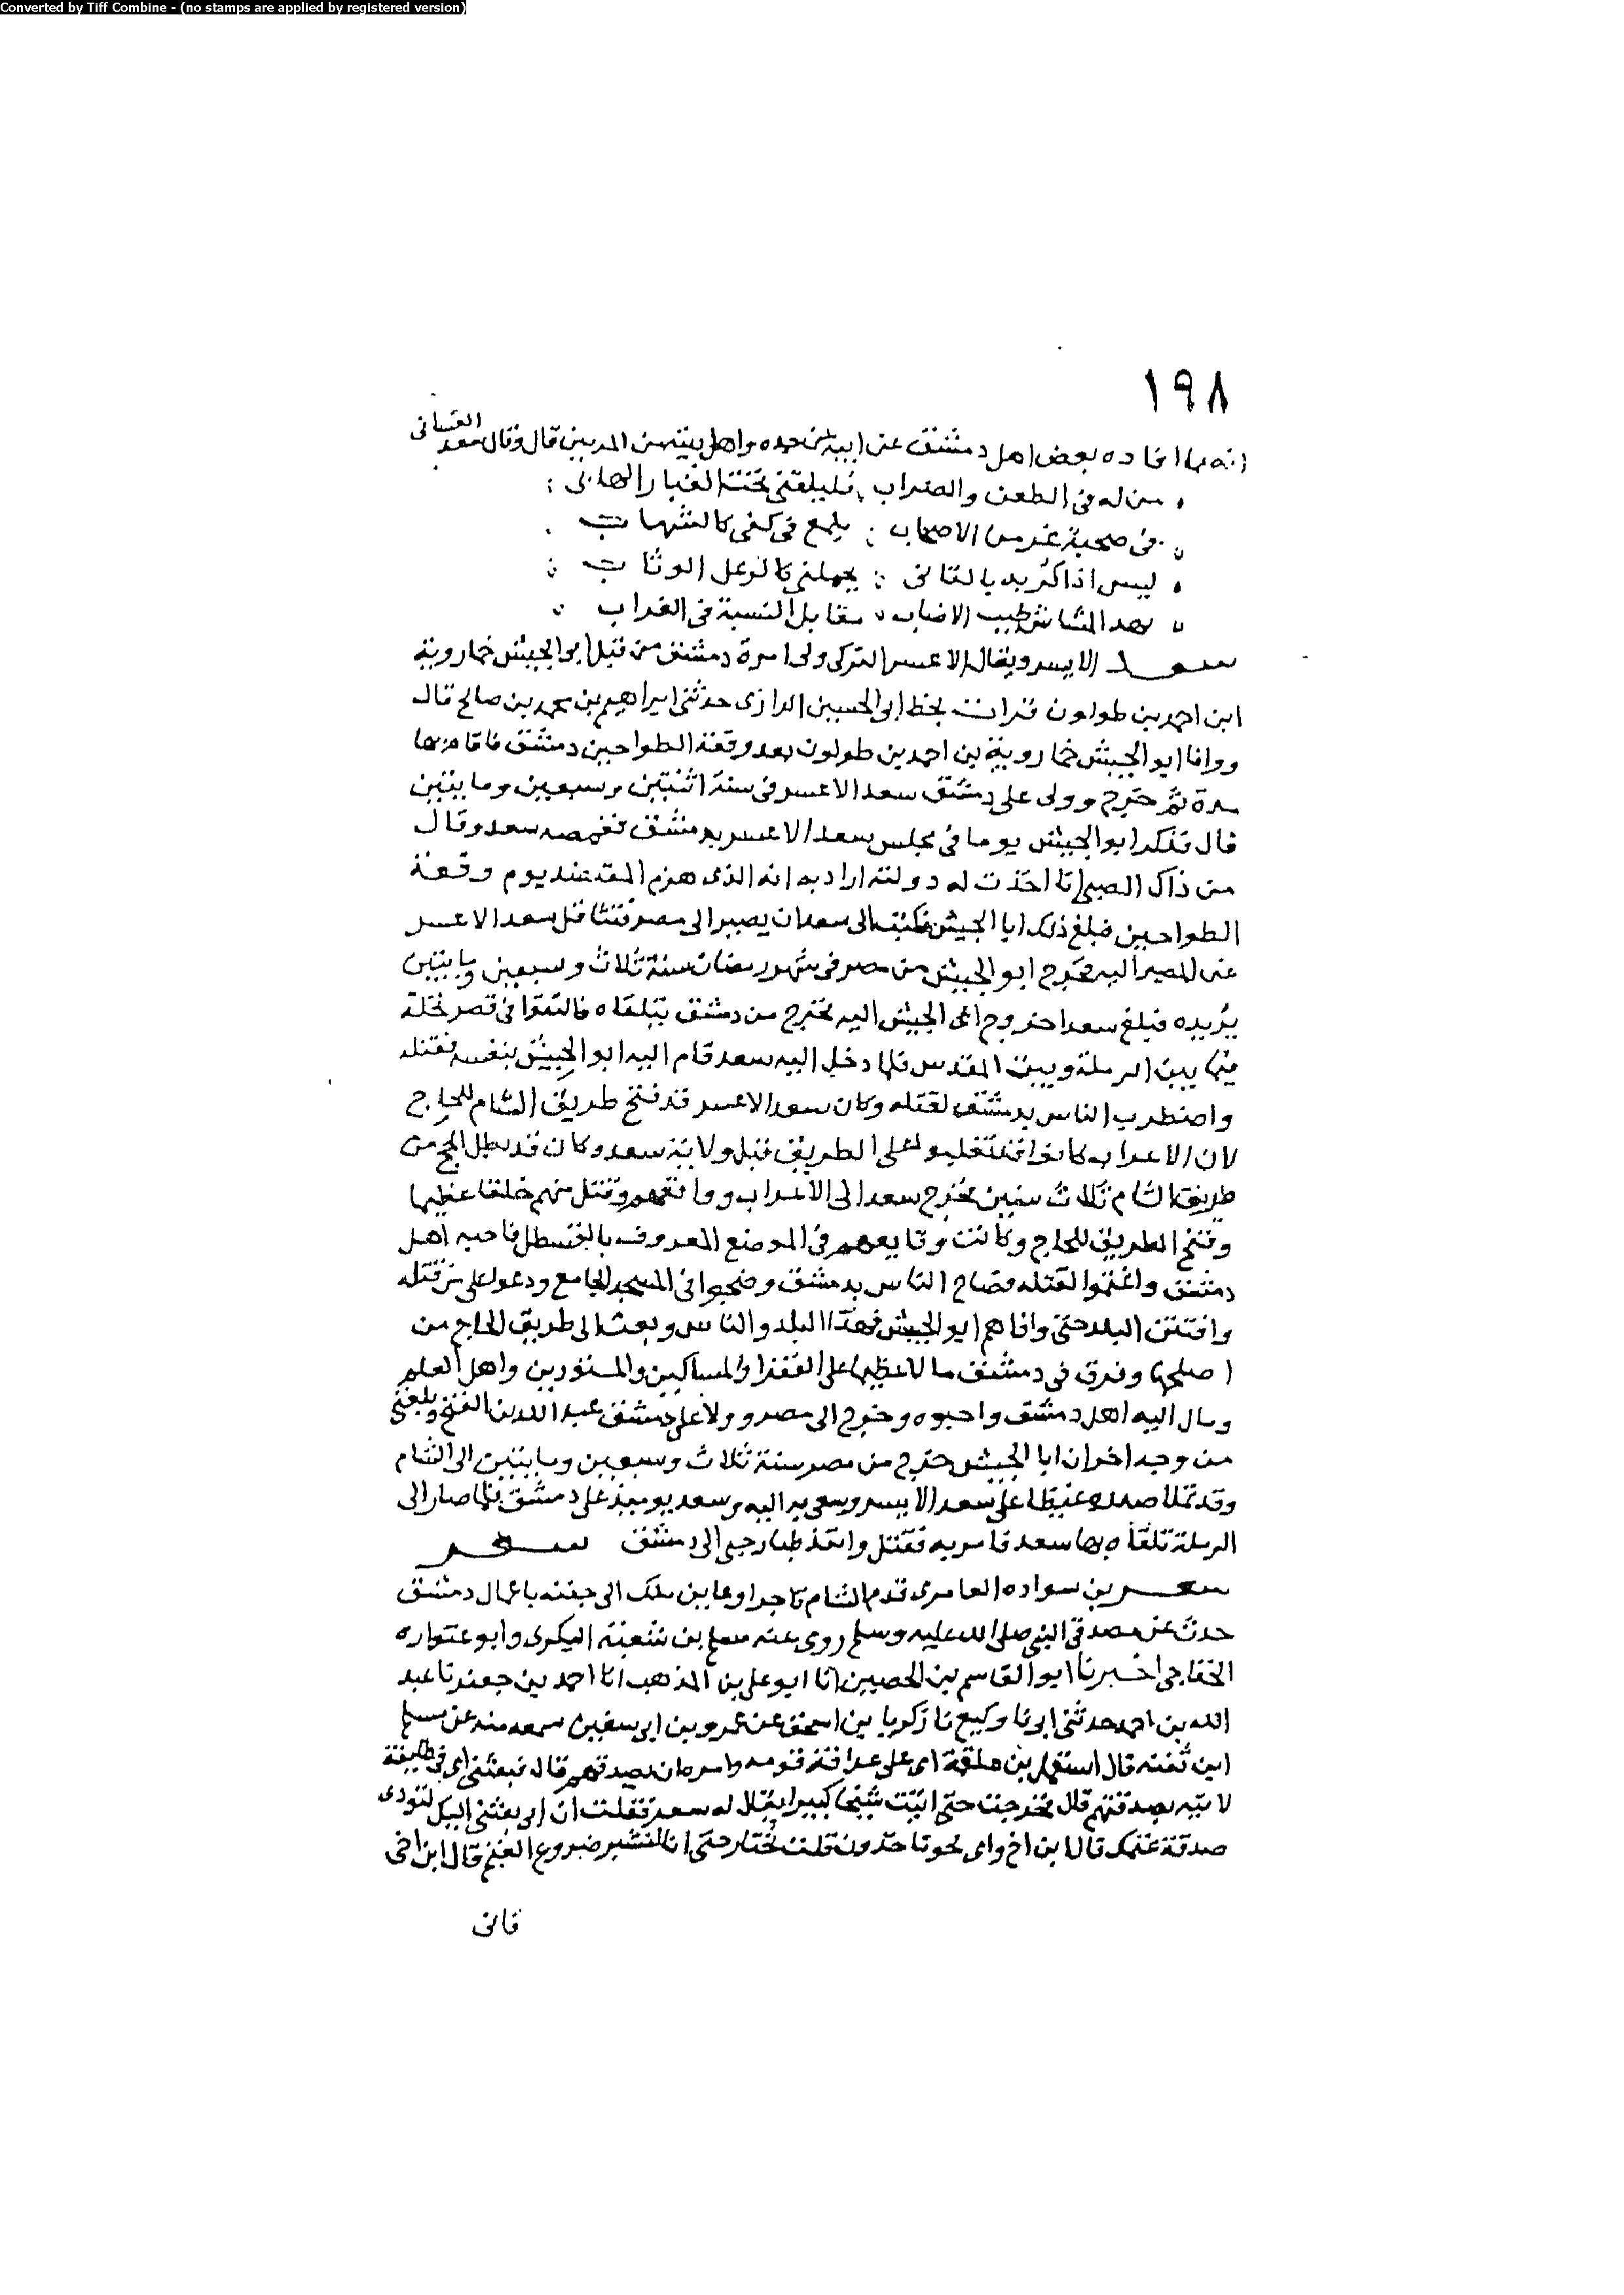 Converted by Tiff Combine - (no stamps are applied by registered version)
١٩٨
انه مما افاده بعض اهل دمشق عن ابيه عن جده واهل بيته من المريين قال وقال سعد الغسانى
من له فى الطعن والضراب فليلقنى تحت الغبار الهابى
فى صحبة غر من الاصحاب يلمع فى كفى كالشهاب
ليس اذا اكره بالنابى يحملنى كالوعل الوثاب
مقابل النسبة فى الغراب
سعد الايسر ويقال الاعسر التركى ولى امرة دمشق من قبل ابو الجيش خمارويه
ابن احمد بن طولون قرات بخط ابى الحسين الرازى حدثنى ابراهيم بن محمد بن صالح قال
ووافا ابو الجيش خمارويه بن احمد بن طولون بعد وقعة الطواحين دمشق فاقام بها
مدة ثم خرج وولى على دمشق سعد الاعسر فى سنة اثنتين وسبعين ومايتين
قال فذكر ابو الجيش يوما فى مجلس سعد الاعسر بدمشق فغمصه سعد وقال
من ذاك الصبى انا اخذت له دولته اراد به انه الذى هزم المعتضد يوم وقعة
الطواحين فبلغ ذلك ابا الجيش فكتب الى سعد ان يصير الى مصر فتثاقل سعد الاعسر
عن المصير اليه فخرج ابو الجيش من مصر فى شهر رمضان سنة ثلاث وسبعين ومايتين
يريده فبلغ سعدا خروج ابى الجيش اليه فخرج من دمشق يتلقاه فالتقوا فى قصر نخلة
فيما بين الرملة وبيت المقدس فلما دخل اليه سعد قام اليه ابو الجيش بنفسه فقتله
واضطرب الناس بدمشق لقتله وكان سعد الاعسر قد فتح طريق الشام للحاج
لان الاعراب كانوا قد تغلبوا على الطريق قبل ولاية سعد وكان قد بطل الحج من
طريق الشام ثلاث سنين فخرج سعد الى الاعراب وواقعهم وقتل منهم خلقا عظيما
وفتح الطريق للحاج وكانت وقايعهم فى الموضع المعروف بالقسطل فاحبه اهل
دمشق واغتموا لقتله فصاح الناس بدمشق وضجوا فى المسجد الجامع ودعوا على من قتله
وافتتن البلد حتى وافاهم ابو الجيش فهدا البلد والناس وبعث الى طريق الحاج من
اصلحها وفرق فى دمشق مالا عظيما على الفقرا والمساكين والمستورين واهل العلم
ومال اليه اهل دمشق واحبوه وخرج الى مصر وولا على دمشق عبد الله بن الفتح وبلغنى
من وجه اخر ان ابا الجيش خرج من مصر سنة ثلاث وسبعين ومايتين الى الشام
وقد تملا صدره غيظا على سعد الايسر وسعى به اليه وسعد يوميذ على دمشق فلما صار الى
الرملة تلقاه بها سعد فامر به فقتل وانفذ طبارجى الى دمشق سعر
سعر بن سواده العامرى قدم الشام تاجرا وعاين ملك ال جفنه باعمال دمشق
حدث عن مصدقى النبى صلى الله عليه وسلم روى عنه مسلم بن شعبة اليكرى وابو عتواره
الخفاجى اخبرنا ابو القاسم بن الحصين انا ابو على بن المذهب انا احمد بن جعفر نا عبد
الله بن احمد حدثنى ابى نا وكيع نا زكريا بن اسحق عن عمرو بن ابى سفين سمعه منه عن مسلم
ابن ثفنه قال استعمل بن علقمة ابى على عرافة قومه وامره ان يصدقهم قال فبعثنى ابى فى طايفة
لاتيه بصدقتهم قال فخرجت حتى اتيت شيخا كبيرا يقال له سعر فقلت ان ابى بعثنى اليك لتودى
صدقة غنمك قال ابن اخ واى نحو تاخذون قلت نختار حتى انا لنشبر ضروع الغنم قال ابن اخى
فانى